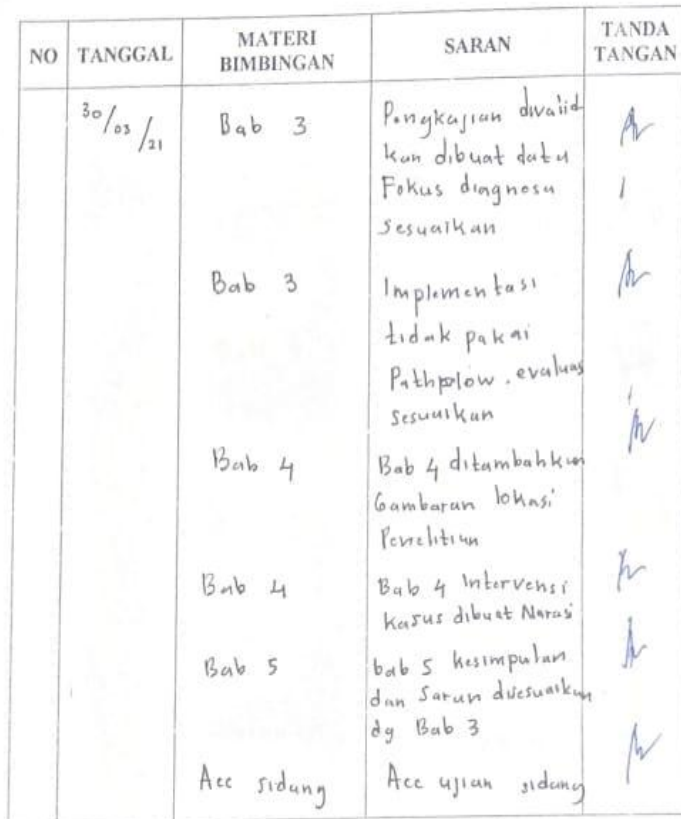 NO TANGGAL MATERI BIMBINGAN SARAN TANDA TANGAN
30/03/21 Bab 3 Pengkajian divalid
kan dibuat data
Fokus diagnosa
sesuaikan
Bab 3 Implementasi
tidak pakai
Pathplow. evaluas
sesuaikan
Bab 4 Bab 4 ditambahkan
Gambaran lokasi
Penelitian
Bab 4 Bab 4 Intervensi
kasus dibuat Narasi
Bab 5 bab 5 kesimpulan
dan Saran disesuaikan
dg Bab 3
Acc sidang Acc ujian sidang